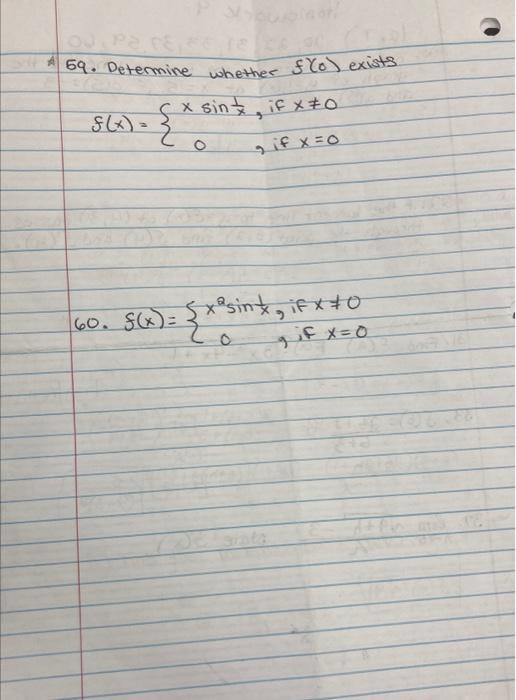 59. Determine whether f'(0) exists
f(x) = { x sin 1/x, if x ≠ 0
0, if x = 0
60. f(x) = { x² sin 1/x, if x ≠ 0
0, if x = 0